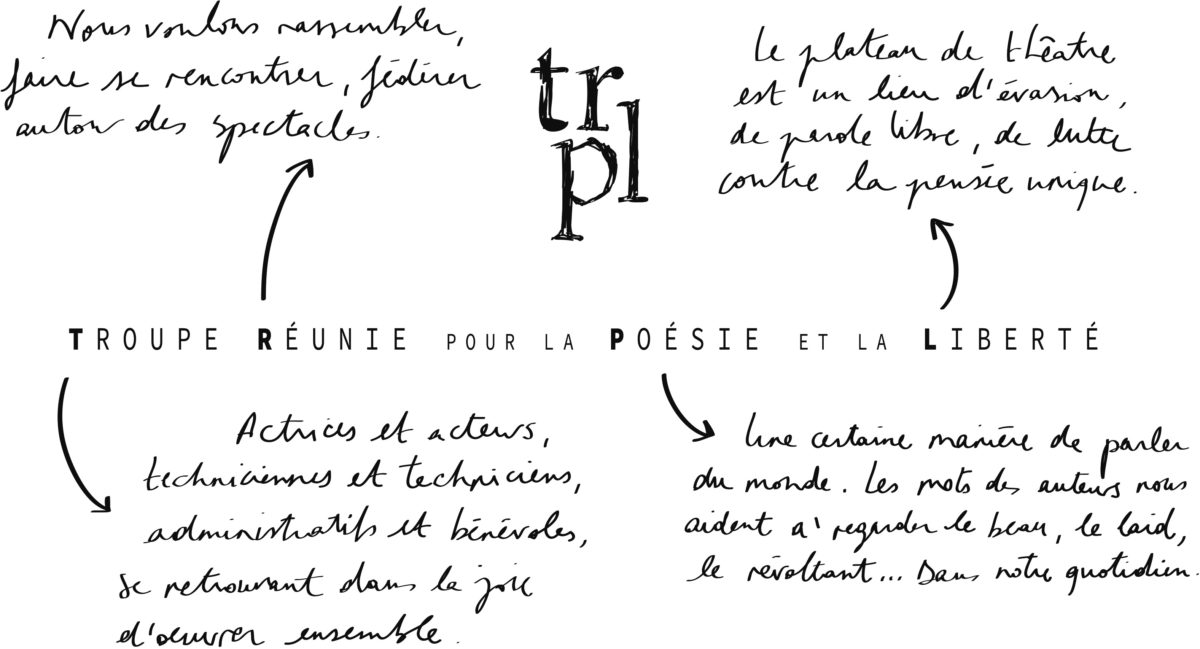 Nous voulons rassembler,
faire se rencontrer, fédérer
autour des spectacles.
tr
pl
Le plateau de théâtre
est un lieu d'évasion,
de parole libre, de lutte
contre la pensée unique.
TROUPE RÉUNIE POUR LA POÉSIE ET LA LIBERTÉ
Actrices et acteurs,
techniciennes et techniciens,
administratifs et bénévoles,
se retrouvant dans la joie
d'œuvrer ensemble.
Une certaine manière de parler
du monde. Les mots des auteurs nous
aident à regarder le beau, le laid,
le révoltant... Dans notre quotidien.